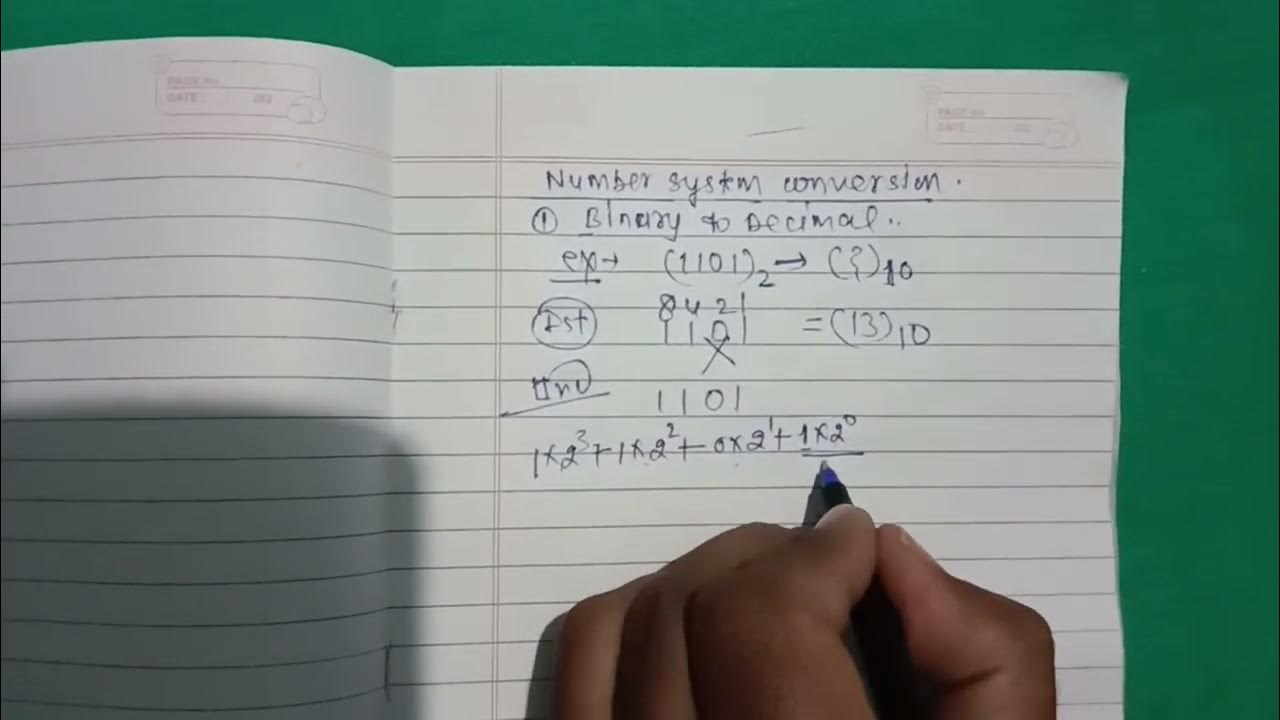 PAGE No
DATE
PAGE No
DATE
Number system conversion.
① Binary to Decimal..
ex→ (1101)₂ → (?)₁₀
1st 8 4 2 1
1 1 0 1 = (13)₁₀
1101
1×2³+1×2²+0×2¹+1×2⁰